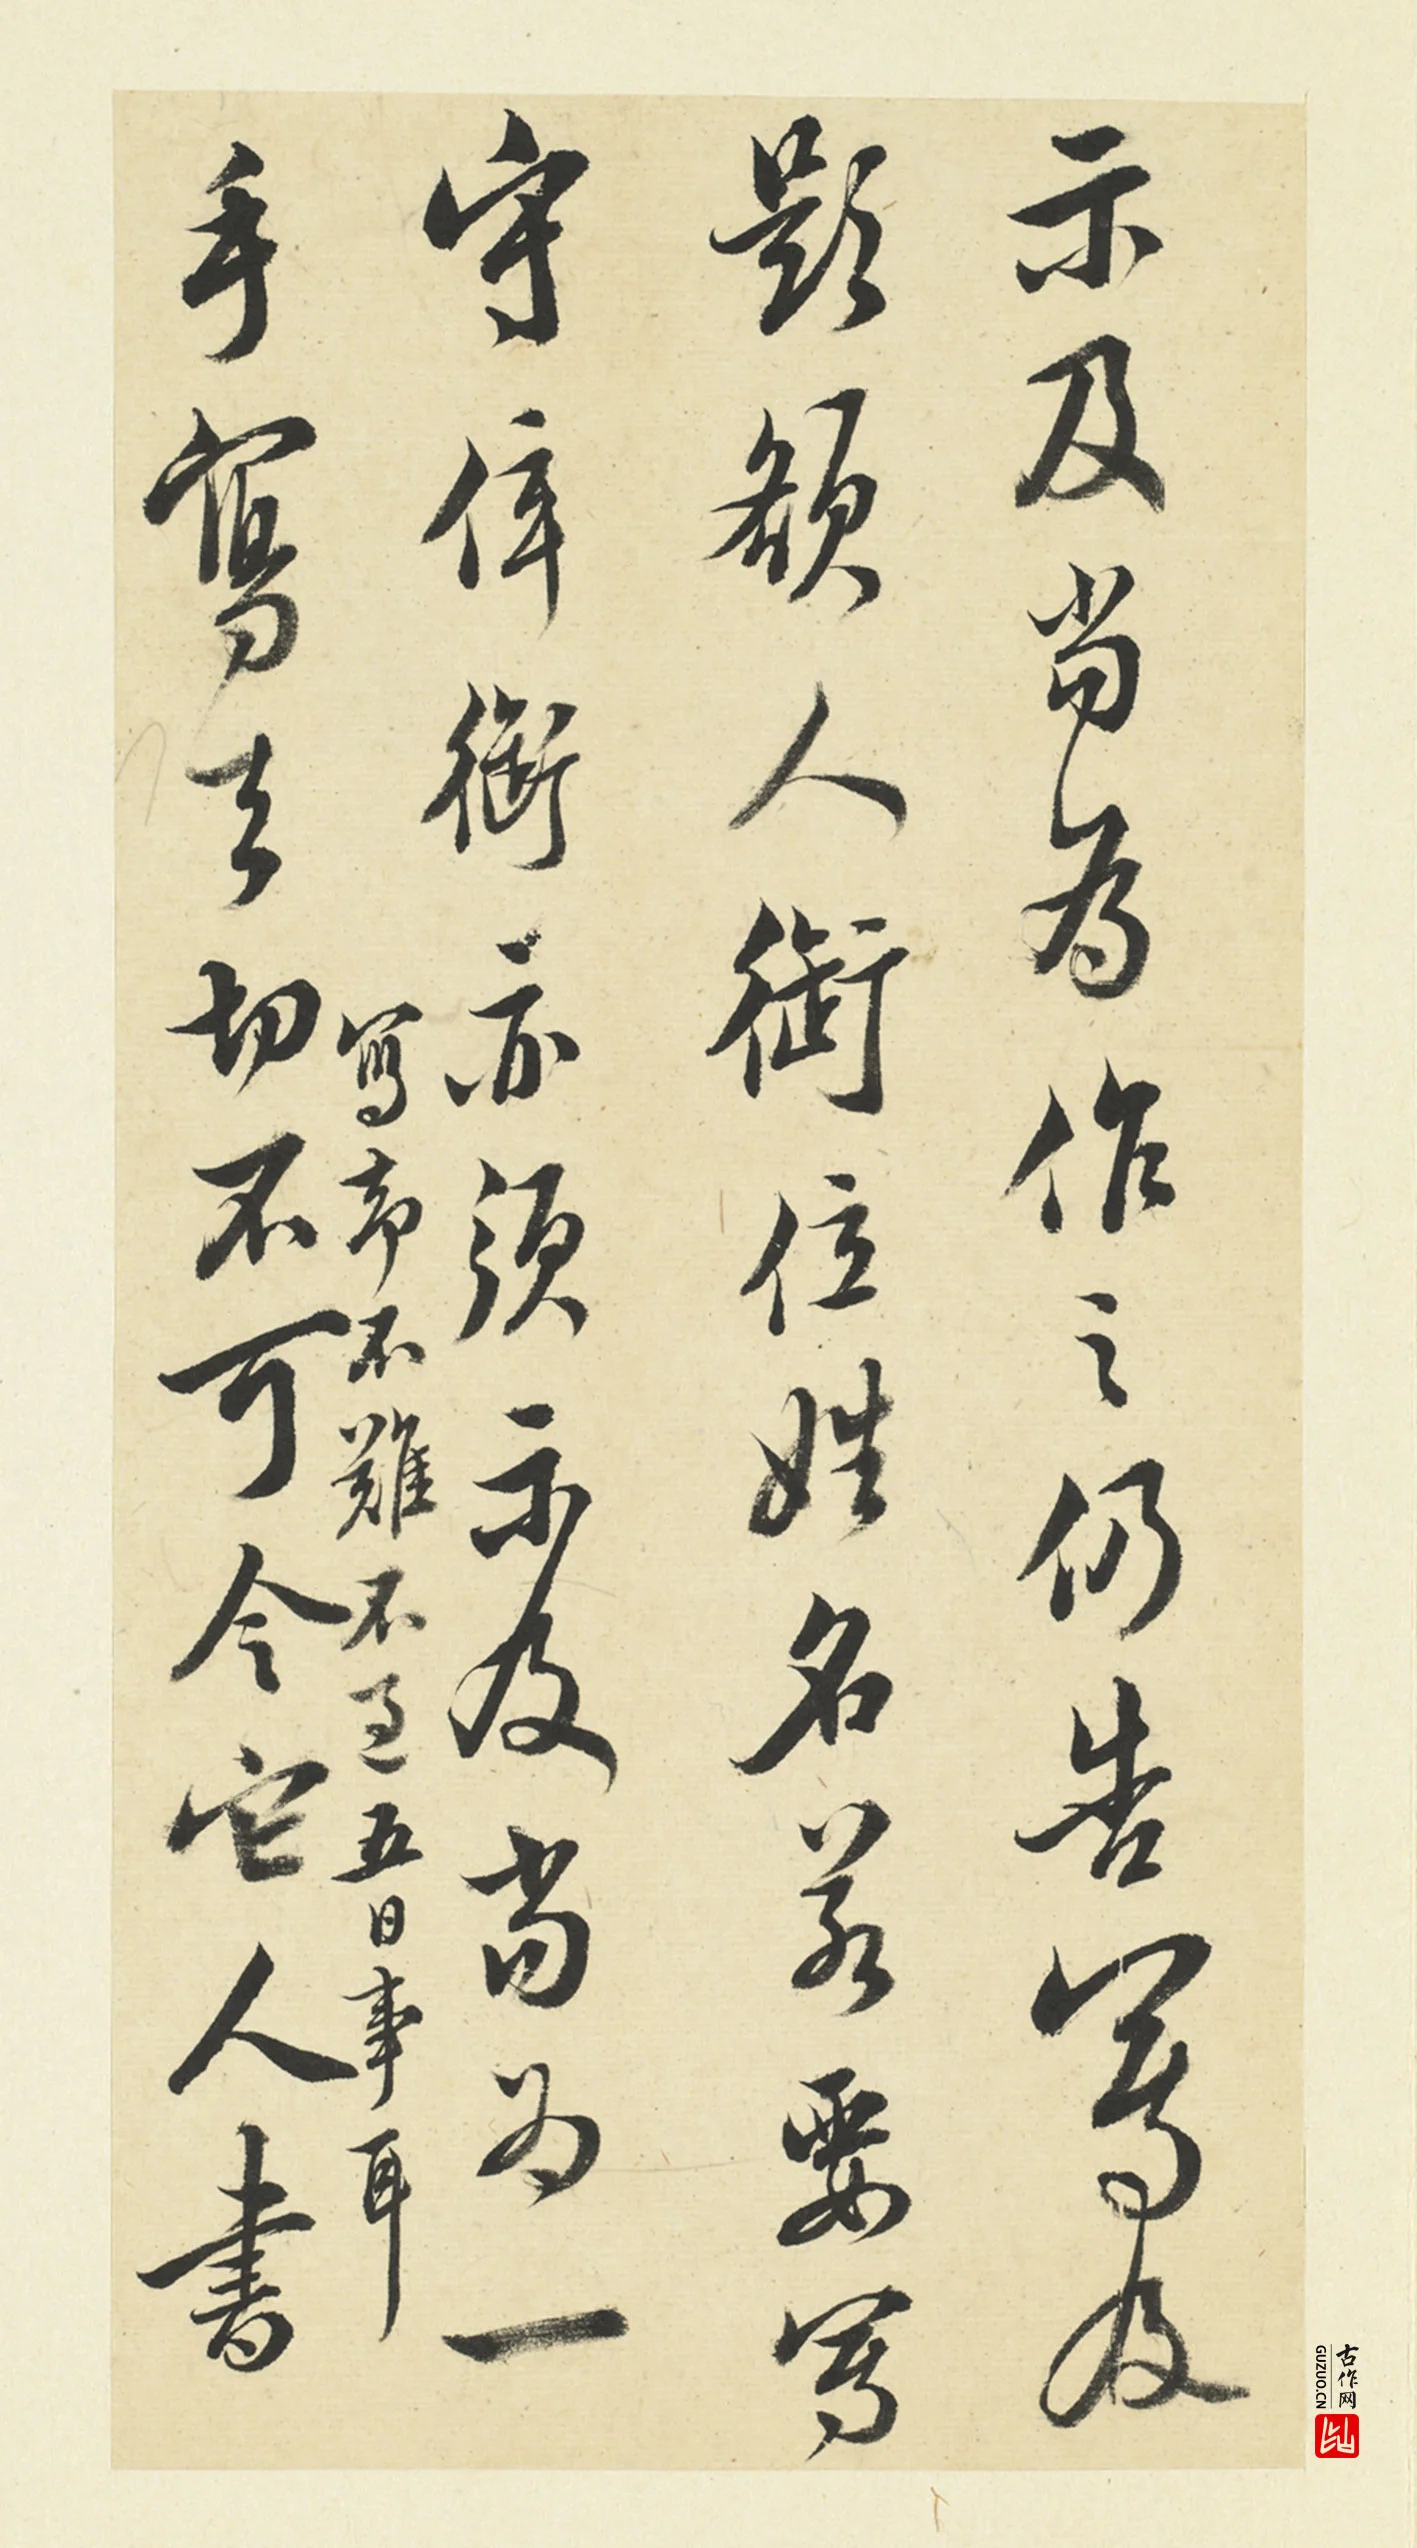 示及當為作之仍告寫及
題額人銜位姓名若要寫
守倅銜亦須示及當為一
寫却不難不過五日事耳
手寫去切不可令它人書
古作网
GUZUO.CN